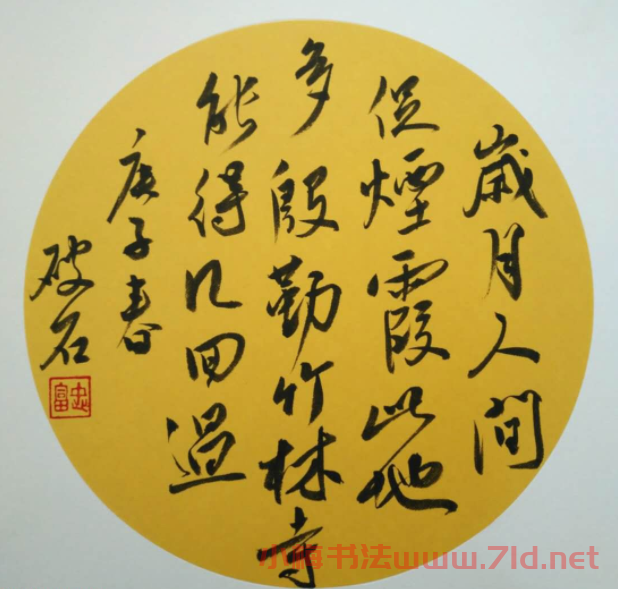 歲月人間
促煙霞此地
多殷勤竹林寺
能得几回過
庚子春
破石
忠富
小楠书法www.7ld.net